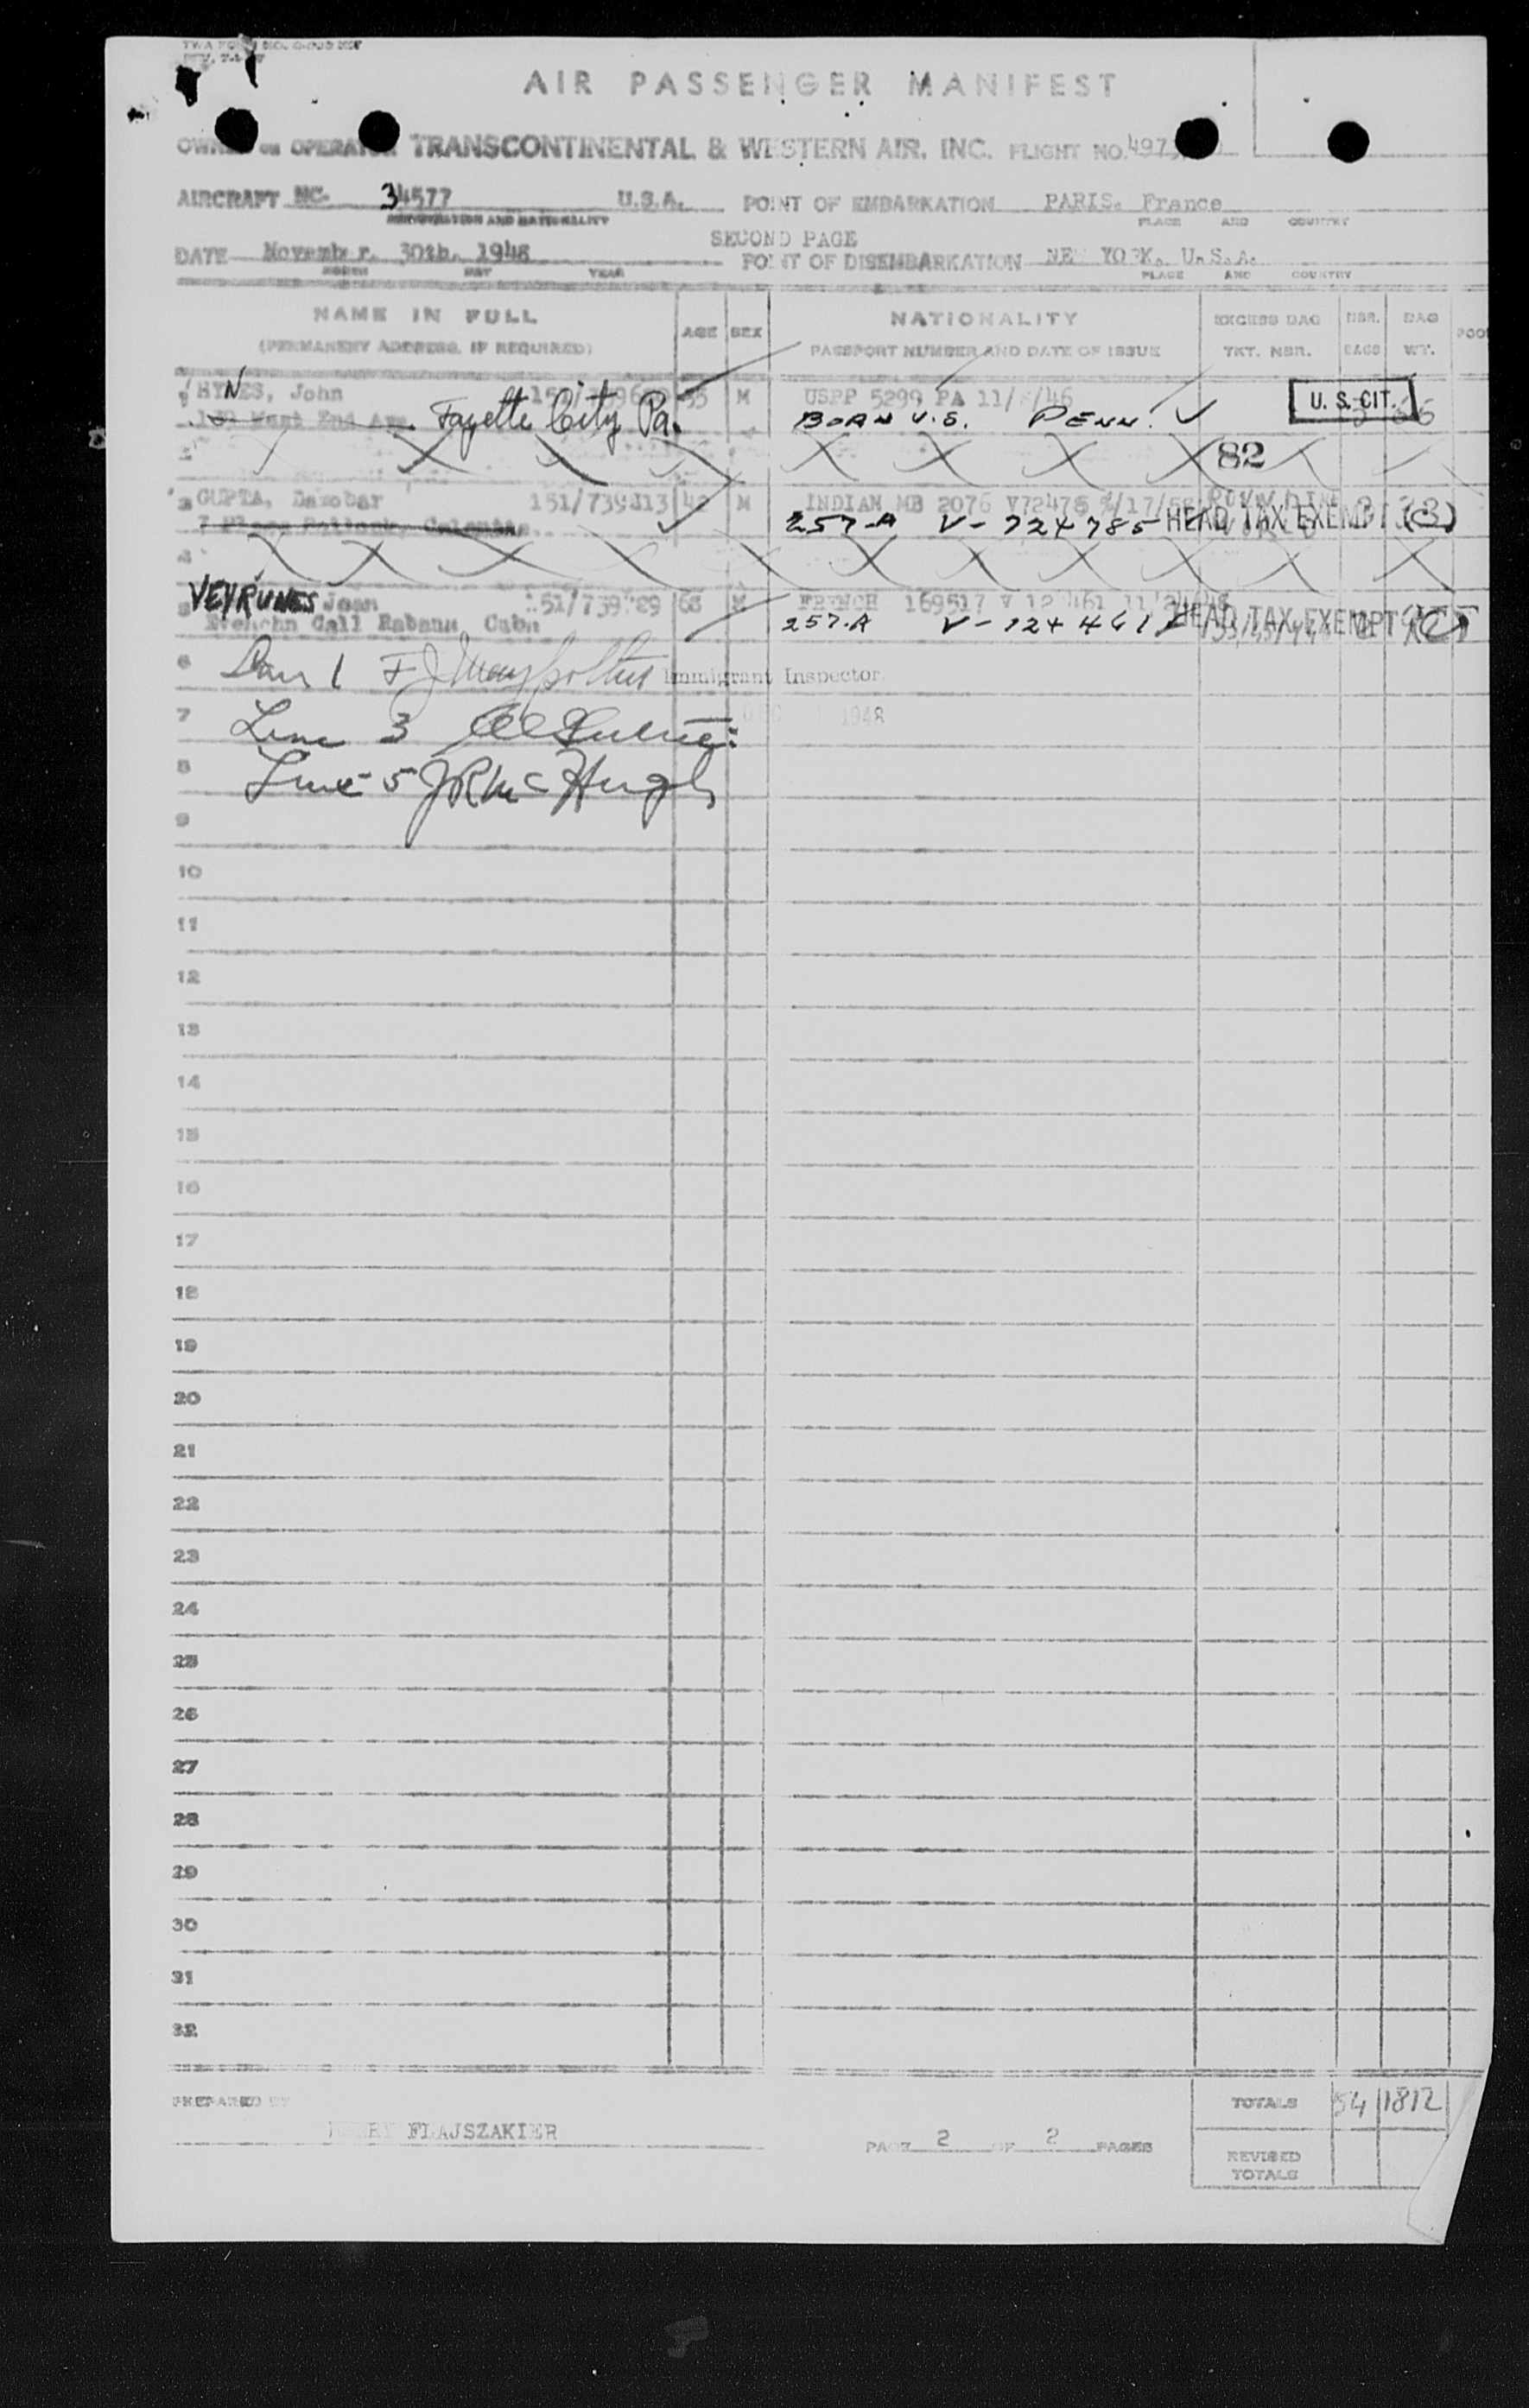 AIR PASSENGER MANIFEST
OWNER OR OPERATOR TRANSCONTINENTAL & WESTERN AIR. INC. FLIGHT NO.
AIRCRAFT NC- 34577 U.S.A. POINT OF EMBARKATION PARIS. France
REGISTRATION AND NATIONALITY PLACE AND COUNTRY
SECOND PAGE
DATE November. 30th. 1948 POINT OF DISEMBARKATION NEW YORK. U.S.A.
MONTH DAY YEAR PLACE AND COUNTRY
NAME IN FULL AGE SEX NATIONALITY EXCESS BAG NBR. BAG
(PERMANENT ADDRESS, IF REQUIRED) PASSPORT NUMBER AND DATE OF ISSUE TKT. NBR. BAGS WT.
N
HYNES, John M USPP 5299 PA 11/ /46 U. S. CIT.
West End Ave. Fayette City Pa. BORN U.S. PENN.
82
3 GUPTA, Damobar 151/739313 42 M INDIAN MB 2076
7 Place Calcutta 257-A V-724785 HEAD TAX EXEMPT (3)
4
VEYRUNES Jean 151/739 29 68 FRENCH 169517
5 Call Cuba 257-A V-724461 HEAD TAX EXEMPT
6 Line 1 Immigrant Inspector
7 Line 3 1948
8 Line 5 JR McHugh
9
10
11
12
13
14
15
16
17
18
19
20
21
22
23
24
25
26
27
28
29
30
31
32
PREPARED BY TOTALS 54 1812
FLAJSZAKIER PAGE 2 OF 2 PAGES
REVISED
TOTALS